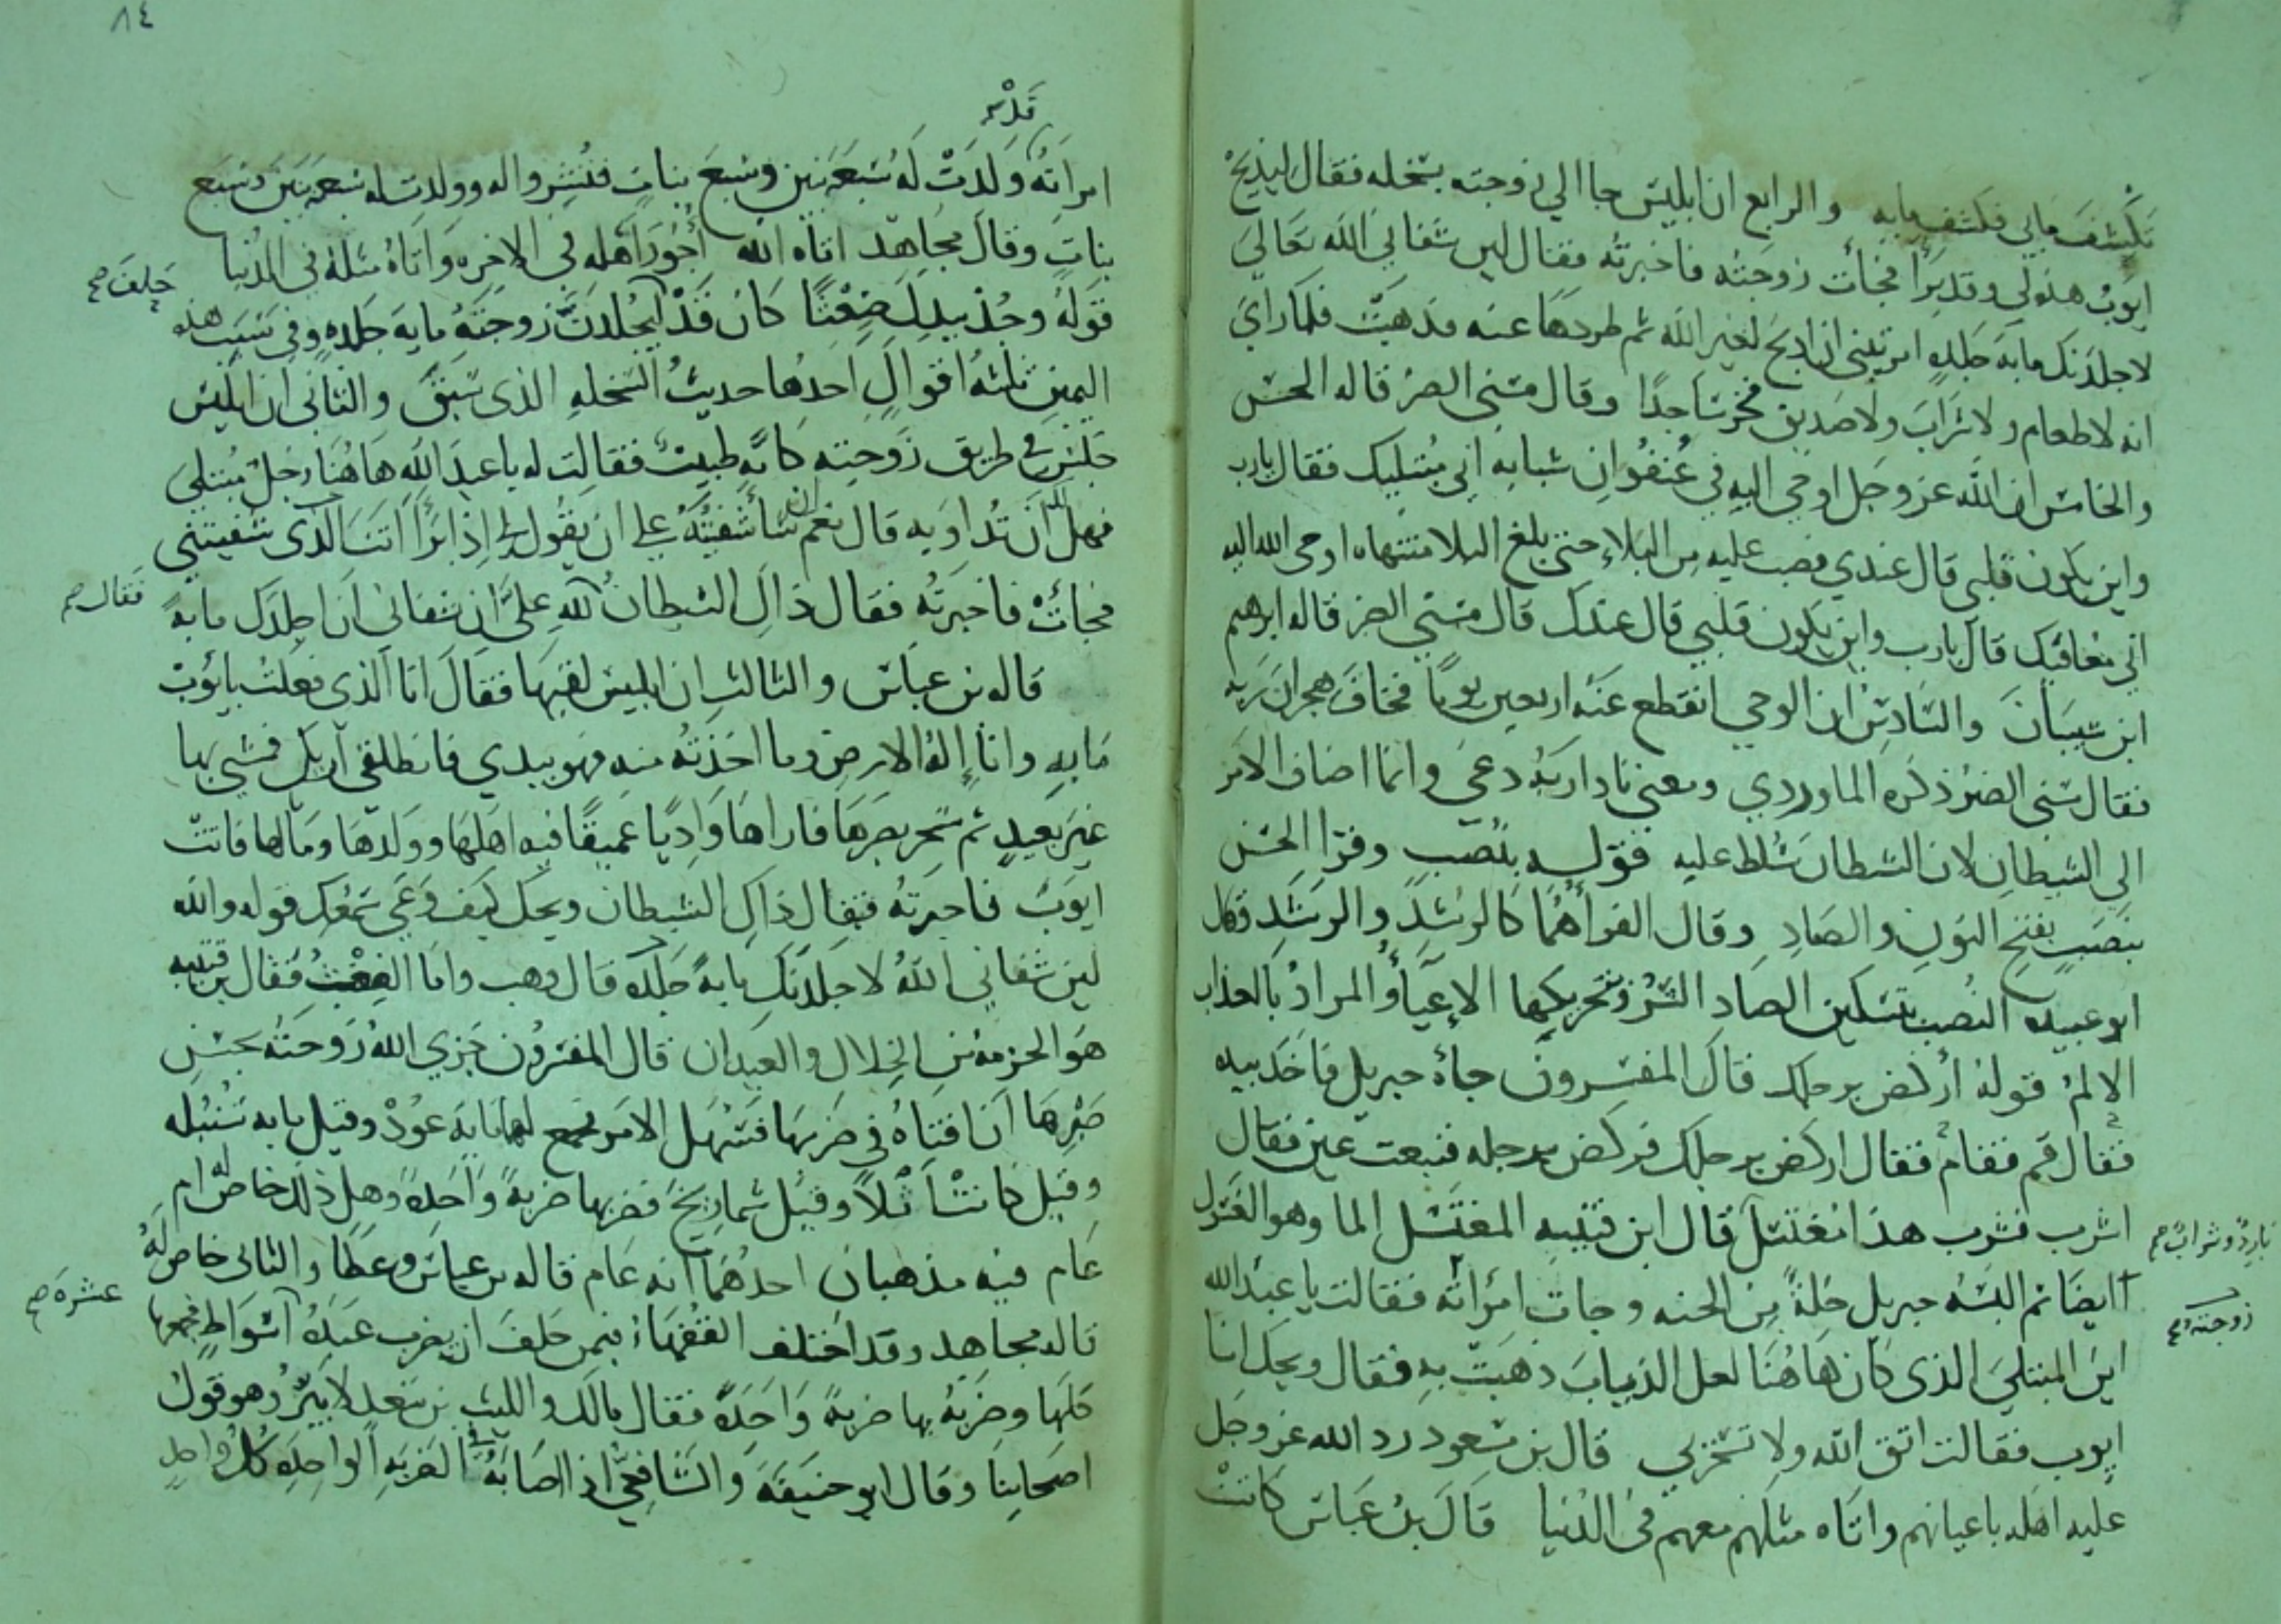 تكشف مابي فكشف مابه والرابع ان ابليس جا الي زوجته بسخله فقال ليذبح
ايوب هذه لي وقد برا فجأت زوجته فاخبرته فقال لين شفاني الله تعالي
لاجلدنك مايه جلده امرتيني ان اذبح لغير الله ثم طردها عنه فذهبت فلما راي
انه لا طعام ولا شراب ولا صديق فخر ساجدا وقال مسني الضر قاله الحسن
والخامس ان الله عز وجل اوحي اليه في عنفوان شبابه اني مبتليك فقال يارب
واين يكون قلبي قال عندي فصب عليه من البلاء حتي بلغ البلا منتهاه اوحي الله اليه
اني معافيك قال يارب واين يكون قلبي قال عندك قال مسني الضر قاله ابرهيم
ابن شيبان والسادس ان الوحي انقطع عنه اربعين يوما فخاف هجران ربه
فقال مسني الضر ذكره الماوردي ومعني نادا ربه دعي وانما اضاف الامر
الي الشيطان لان الشطان سلط عليه قوله بنصب وقرا الحسن
بنصب بفتح النون والصاد وقال الفرا هما كالرشد والرشد وقال
ابو عبيده النصب بتسكين الصاد الشر وتحريكها الاعيأ والمراد بالعذاب
الالم قوله اركض برجلك قال المفسرون جاه جبريل فاخذ بيده
فقال قم فقام فقال اركض برجلك فركض برجله فنبعت عين فقال
اشرب فشرب هذا مغتسل قال ابن قتيبه المغتسل الما وهو الغسول
بارد وشراب صح
ايضا ثم البسه جبريل حلة من الجنه وجات امراته فقالت يا عبد الله
زوجته
اين المبتلي الذي كان هاهنا لعل الذياب ذهبت به فقال ويحك انا
ايوب فقالت اتق الله ولا تسخر بي قال بن مسعود رد الله عز وجل
عليه اهله باعيانهم واتاه مثلهم معهم في الدنيا قال بن عباس كانت
٨٤
امراته ولدت له سبعه بنين وسبع بنات فنشروا له وولدت له سبعه بنين وسبع
بنات وقال مجاهد اتاه الله أجور اهله في الاخره واتاه مثله في الدنيا
قوله وخذ بيدك ضغثا كان قد ليجلدن زوجته مايه جلده وفي سبب هذه
حلف صح
اليمين ثلثه اقوال احدها حديث السخله الذي سبق والثاني ان ابليس
جلس في طريق زوجته كانه طبيب فقالت له يا عبد الله هاهنا رجل مبتلي
فهل لك ان تداويه قال نعم ان شا شفيته علي ان يقول لي اذا برا انت الذي شفيتني
فجأت فاخبرته فقال ذاك الشيطان لله علي ان شفاني ان اجلدك مايه
فقال صح
قاله بن عباس والثالث ان ابليس لقيها فقال انا الذي فعلت بايوب
مابه وانا إله الارض وما اخذته منه فهو بيدي فانطلقي اريك فمشي بها
غير بعيد ثم سحر بصرها فاراها واديا عميقا فيه اهلها وولدها ومالها فاتت
ايوب فاخبرته فقال ذاك الشيطان ويحك كيف وعي سمعك قوله والله
لين شفاني الله لاجلدنك مايه جلده قال وهب واما الضغث فقال بن قتيبه
هو الحزمه من الخلال والعيدان قال المفسرون جزي الله زوجته بحسن
صبرها ان افتاه في ضربها فسهل الامر فجمع لها مايه عود وقيل مايه سنبله
وقيل كانت اثلا وقيل شماريخ فضربها ضربة واحدة وهل ذلك خاص له ام
عام فيه مذهبان احدهما انه عام قاله بن عباس وعطا والثاني خاص له
قاله مجاهد وقد اختلف الفقهاء فيمن حلف ان يضرب عبده اسواط فجمعها
عشره صح
كلها وضربه بها ضربة واحدة فقال مالك والليث بن سعد لا يبر وهو قول
اصحابنا وقال ابو حنيفة والشافعي اذا اصابه في الضربه الواحده كل واحد